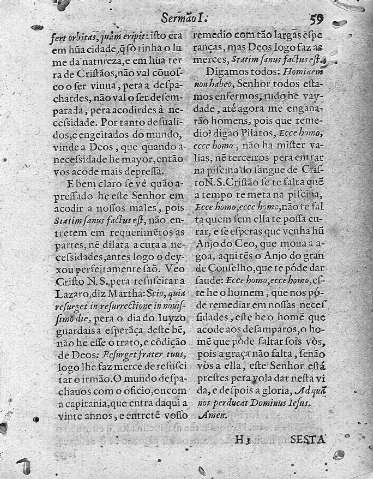 Sermão I. 59
fert orbitas, quàm eripit: isto era
em hũa cidade, q̃ só tinha o lu
me da natureza, e em hũa ter
ra de Cristãos, não val cõuos-
co o ser viuua, pera a despa-
chardes, não val o ser desem-
parada, pera acodirdes à ne-
cessidade. Por tanto desuali-
dos, e engeitados do mundo,
vinde a Deos, que quando a
necessidade he mayor, então
vos acode mais depressa.
E bem claro se vè quão a-
pressado he este Senhor em
acodir a nossos males, pois
Statim sanus factus est, não en-
tretem em requerimẽtos as
partes, nẽ dilata a cura a ne-
cessidades, antes logo o dey-
xou perfeitamente são. Veo
Cristo N. S. pera resuscitar a
Lazaro, diz Martha: Scio, quia
resurget in resurrectione in nouis-
simo die, pera o dia do Iuyzo
guardais a esperãça deste bẽ,
não he esse o trato, e cõdição
de Deos: Resurget frater tuus,
logo lhe faz merce de resusci-
tar o irmão. O mundo despa-
chauos com o oficio, encom
a capitania, que entra daqui a
vinte annos, e entretẽ vosso
remedio com tão largas espe
ranças, mas Deos logo faz as
merces, Statim sanus factus est.
Digamos todos: Hominem
non habeo, Senhor todos esta-
mos enfermos, tudo he vay-
dade, atè agora me engana-
rão homens, pois que reme-
dio? digao Pilatos, Ecce homo,
ecce homo, não ha mister va-
lias, nẽ terceiros pera entrar
na piscina do sangue de Cris-
to N. S. Cristão se te falta quẽ
a tempo te meta na piscina,
Ecce homo, ecce homo, não te fal
ta quem sem ella te possa cu-
rar, e se esperas que venha hũ
Anjo do Ceo, que moua a a-
goa, aqui tẽs o Anjo do gran
de Conselho, que te pòde dar
saude: Ecce homo, ecce homo, es-
te he o homem, que nos pò-
de remediar em nossas neces
sidades, este he o homẽ que
acode aos desamparos, o ho-
mẽ que pòde faltar sois vòs,
pois a graça não falta, senão
vòs a ella, este Senhor està
prestes pera vola dar nesta vi
da, e despois a gloria, Ad quã
nos perducat Dominus Iesus.
Amen.
H 3 SESTA